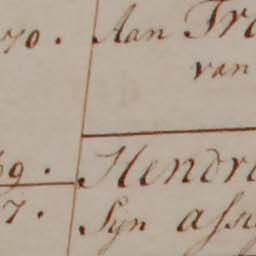 70. Aan Fra
van
69. Hendri
7. Syn assi